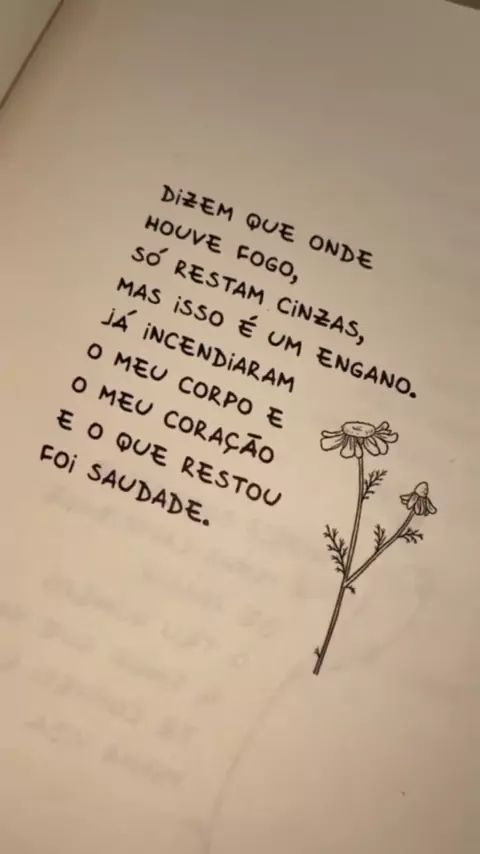 DIZEM QUE ONDE
HOUVE FOGO,
SÓ RESTAM CINZAS,
MAS ISSO É UM ENGANO.
JÁ INCENDIARAM
O MEU CORPO E
O MEU CORAÇÃO
E O QUE RESTOU
FOI SAUDADE.